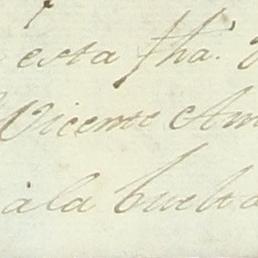 esta fha.
Vicente Am
à la buelta